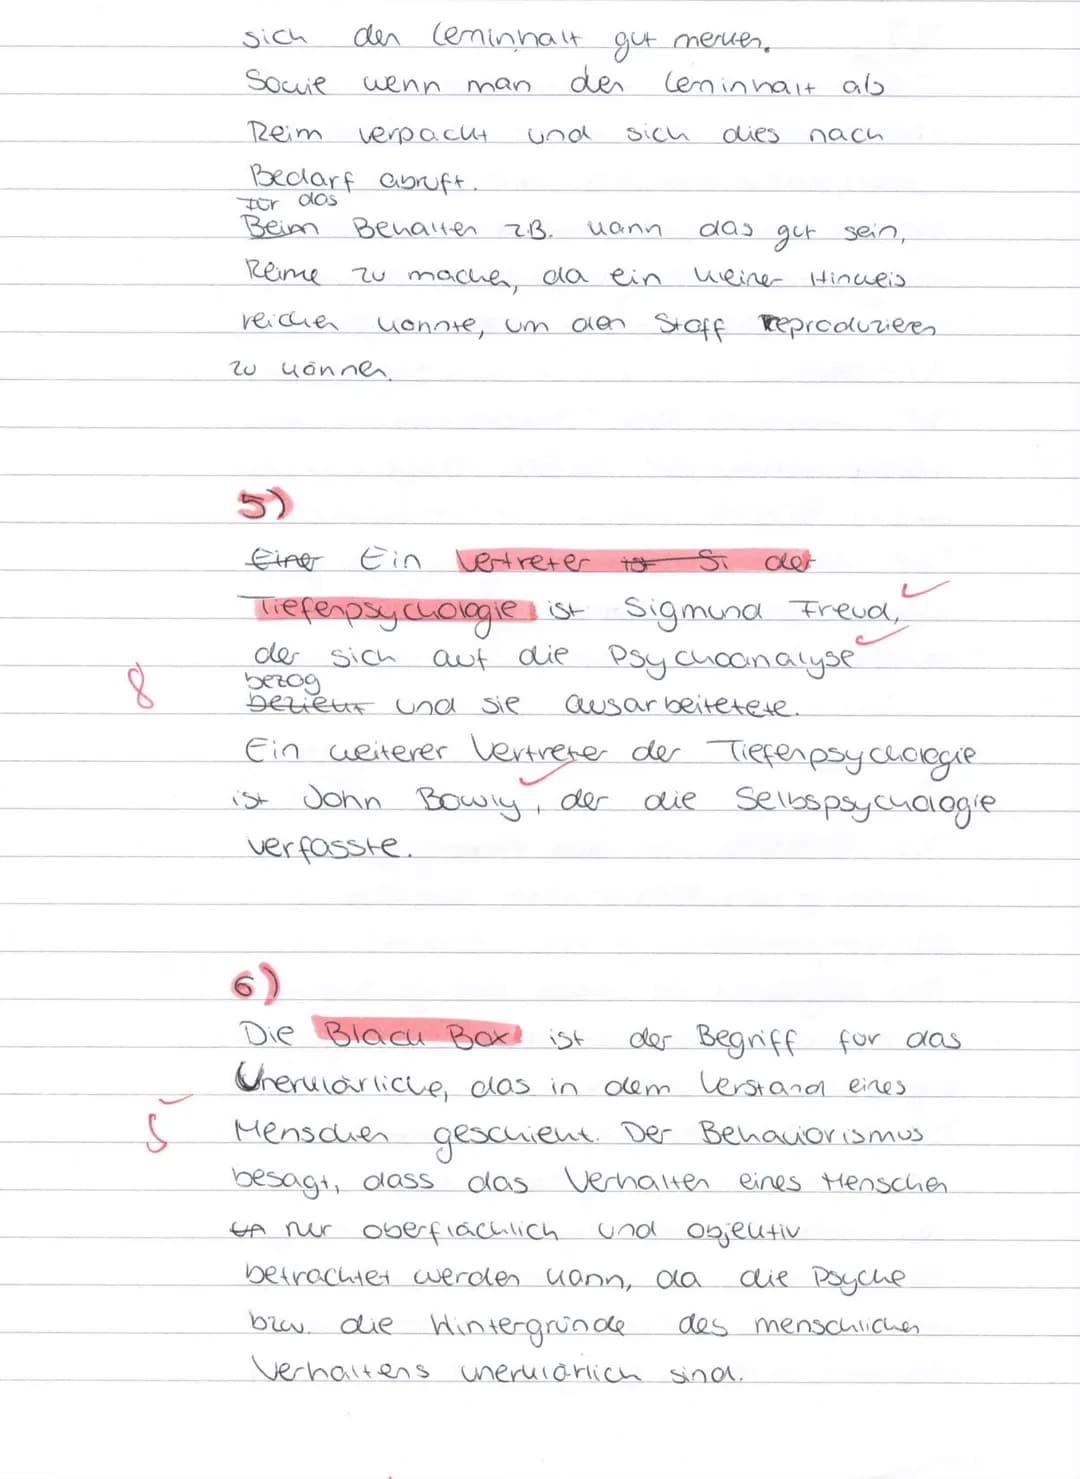 sich den Lerninhalt gut merken.
Sowie wenn man den Lerninhalt als
Reim verpackt und sich dies nach
Bedarf abruft.
Für das
Beim Behalten z.B. kann das gut sein,
Reime zu machen, da ein kleiner Hinweis
reichen könnte, um den Stoff Reproduzieren
zu können.
5)
Einer Ein Vertreter Si der
Tiefenpsychologie ist Sigmund Freud,
der sich auf die Psychoanalyse
bezog
8
bezieht und sie ausarbeitetete.
Ein weiterer Vertreter der Tiefenpsychologie
ist John Bowly, der die Selbspsychologie
verfasste.
6)
Die Black Box ist der Begriff für das
Unerklärliche, das in dem Verstand eines
5
Menschen geschieht. Der Behaviorismus
besagt, dass das Verhalten eines Menschen
nur oberflächlich und objektiv
betrachtet werden kann, da die Psyche
bzw. die Hintergründe des menschlichen
Verhaltens unerklärlich sind.